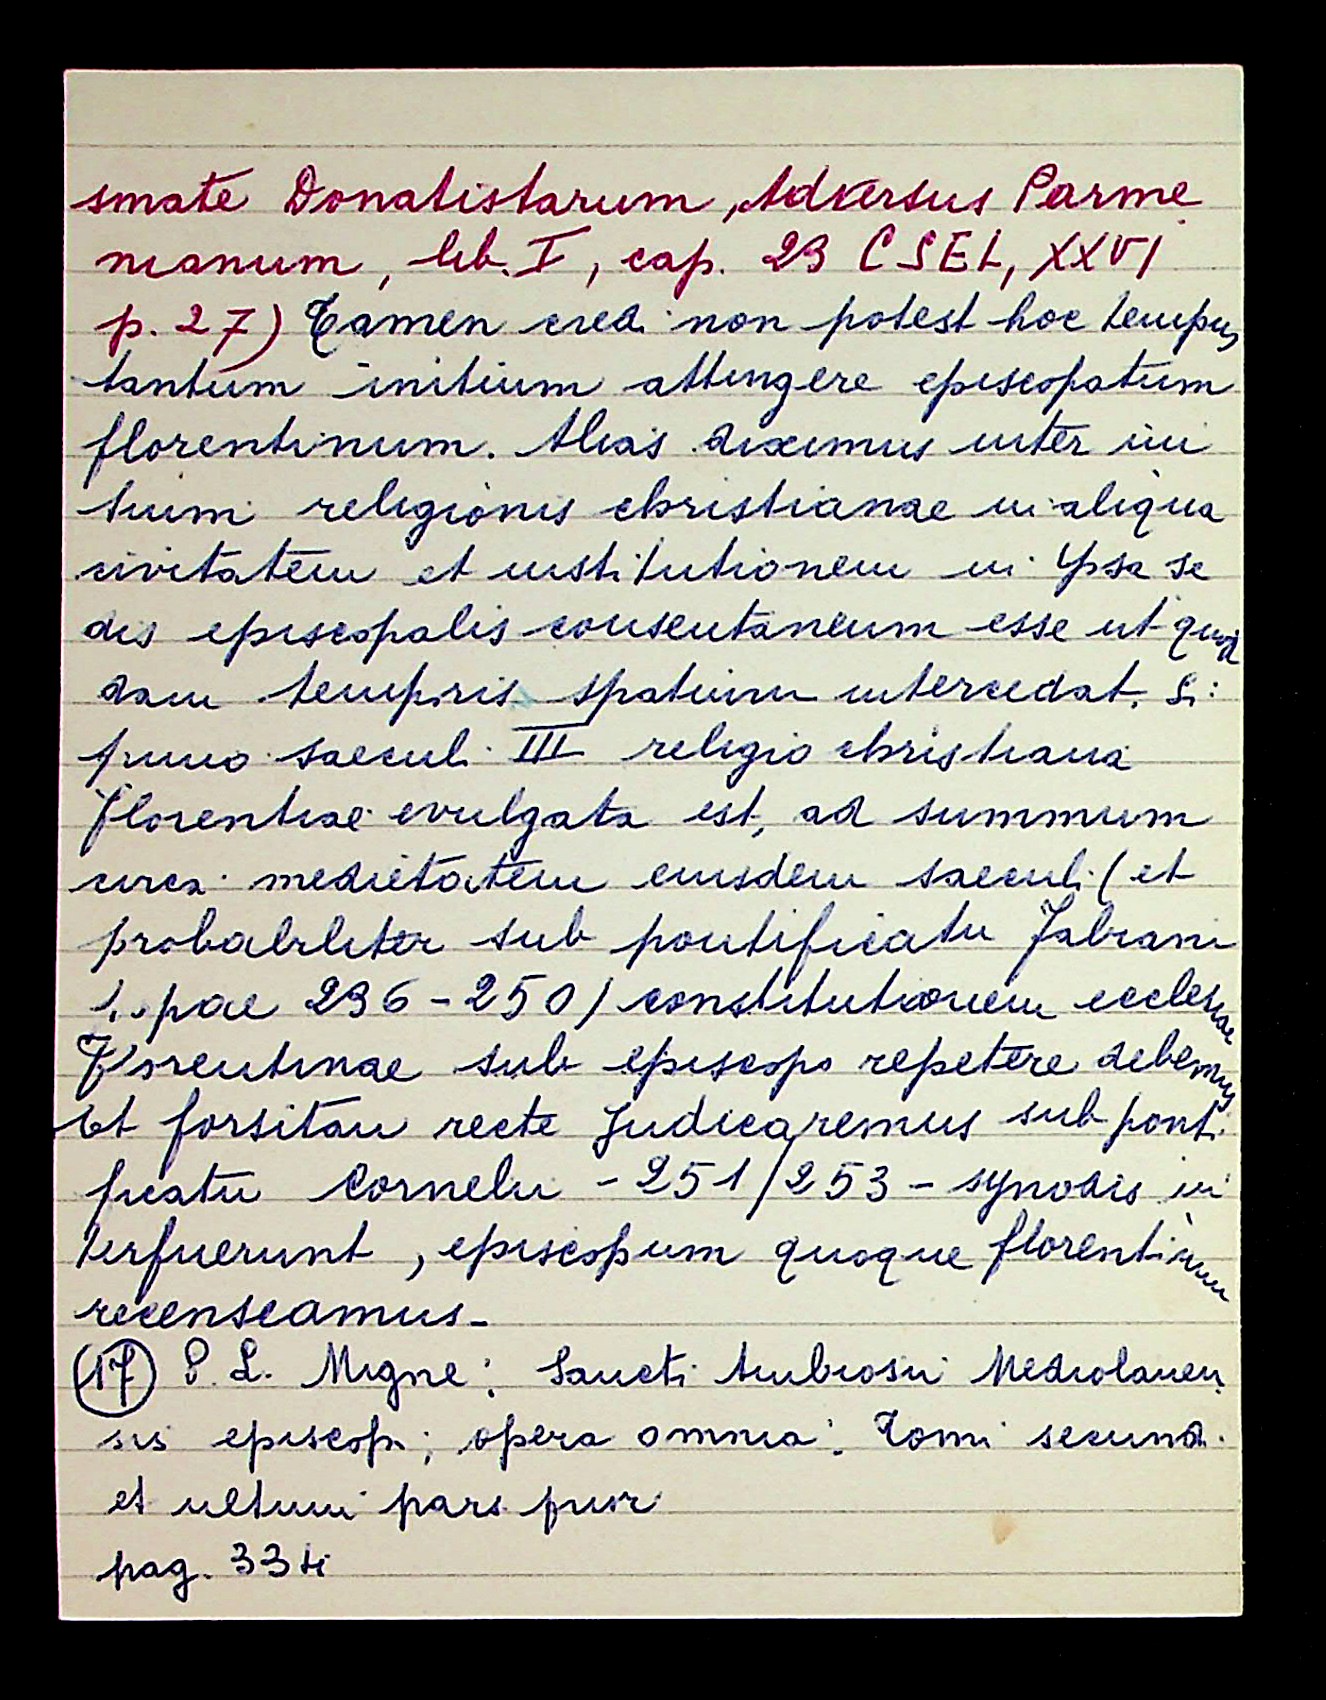 smate Donatistarum, Adversus Parme
nianum, lib. I, cap. 23 CSEL, XXVI
p. 27) Tamen credi non potest hoc tempus
tantum initium attingere episcopatum
florentinum. Alias diximus inter ini
tium religionis christianae in aliqua
civitatem et institutionem in ipsa se
dis episcopalis consentaneum esse ut quod
dam temporis spatium intercedat. Si
primo saeculi III religio christiana
Florentiae evulgata est, ad summum
circa medietatem eiusdem saeculi (et
probabiliter sub pontificatu Fabiani
pae 236-250) constitutionem ecclesiae
Florentinae sub episcopo repetere debemus
et forsitan recte judicaremus sub ponti
ficatu Cornelii - 251/253 - synodis in
terfuerunt, episcopum quoque florentinum
recenseamus -
(17) P. L. Migne: Sancti Ambrosii Mediolanen
sis episcopi; opera omnia: Tomi secundi
et ultimi pars prior
pag. 334